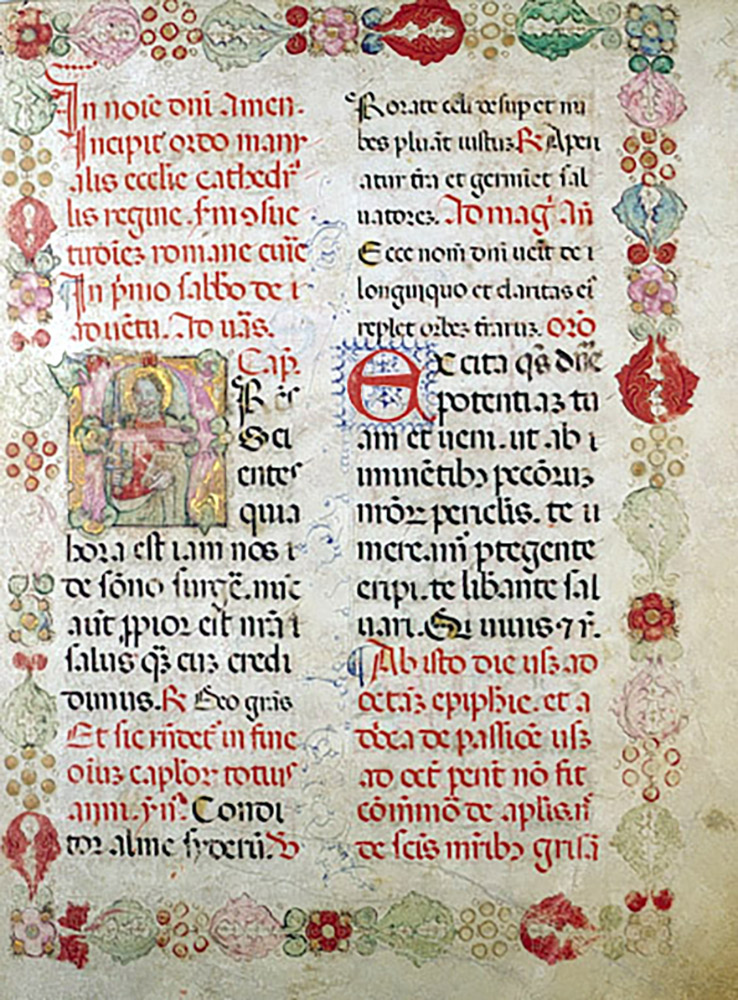 In noīe dnī Amen.
Incipit ordo manu
alis ecclīe cathedr̄
lis regine. s̄m ꝯsue
tudīeꝫ romane curīe
In p̄mo sabb̄o de
aduētu. Ad uās.
Cap.
R̄es
Sci
entes
quia
hora est iam nos
de sōno surgē. nūc
aūt ꝓpior est nr̄a
salus qꝫ cuꝫ credi
dimus. R Deo grās
Et sic rn̄det᷑ in fine
oīuꝫ cap̄lor totius
anni. ym̄s Condi
tor alme syderū. V
Rorate celi desup et nu
bes pluāt iustuꝫ R Aperi
atur t̄ra et germīet sal
uatoreꝫ. Ad maḡ añ
Ecce nom̄ dnī uēit de
longinquo et claritas eī
replet orbeꝫ t̄raruꝫ. Orō
Excita qs̄ dn̄e
potentiaꝫ tu
am et ueni. ut ab
iminētibꝫ pecc̄oruꝫ
nr̄or periclis. te
mereamr̄ ꝓtegente
eripi. te lib̄ante sal
uari. Qui uiuis ⁊ r̄.
Ab isto die usꝫ ad
octaꝫ epiph̄ie. et a
de passiōe usꝫ
ad oct̄ pent̄ nō fit
cōmmō de apl̄is. n̄
de scīs